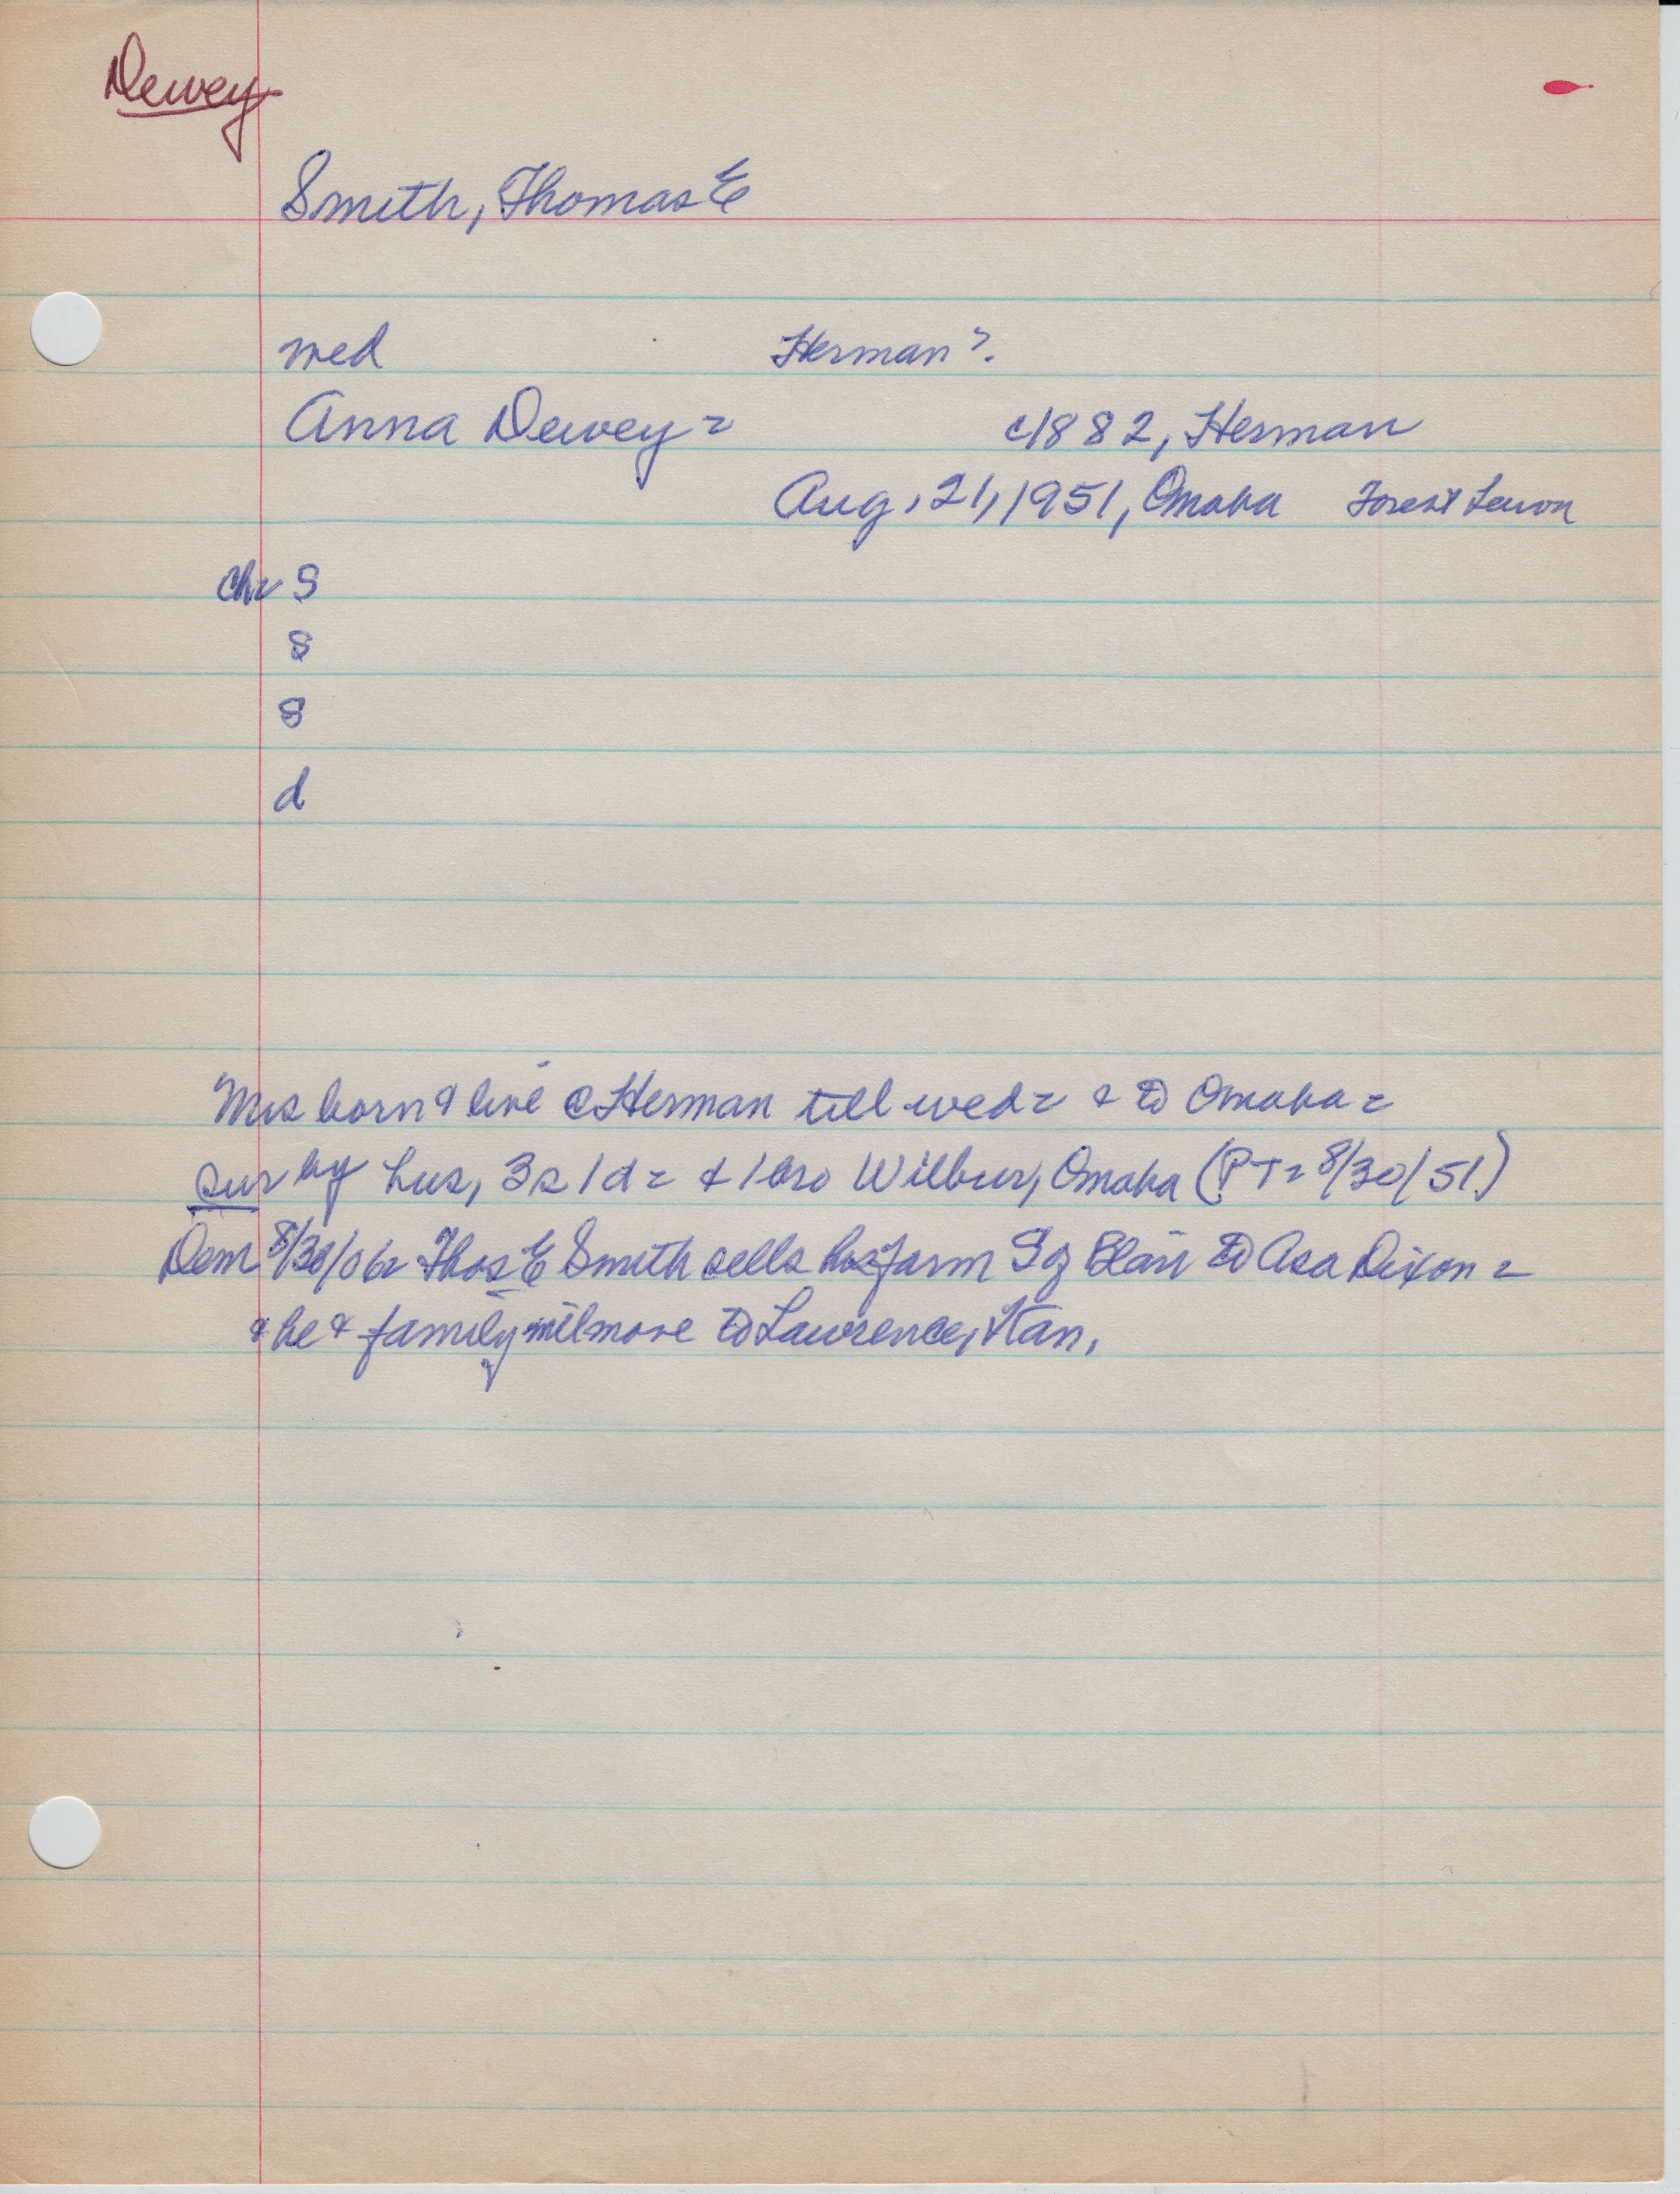 Dewey
Smith, Thomas E
wed Herman?
Anna Dewey = c1882, Herman
Aug. 21, 1951, Omaha Forest Lawn
Ch= S
S
S
d
Mrs born & live @ Herman till wed= & to Omaha =
sur by hus, 3s 1d = & 1 bro Wilbur, Omaha (PT= 8/30/51)
Dem 8/30/06= Thos E Smith sells his farm S of Blair to Asa Dixon =
& he & family will move to Lawrence, Kan.